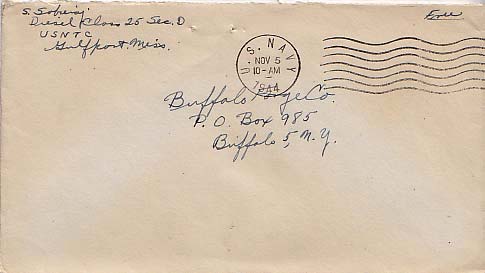 S. Sobieraj
Diesel Class 25 Sec. D
USNTC
Gulfport, Miss.
Free
U.S. NAVY
NOV 5
10-AM
1944
Buffalo Forge Co.
P.O. Box 985
Buffalo 5, N.Y.